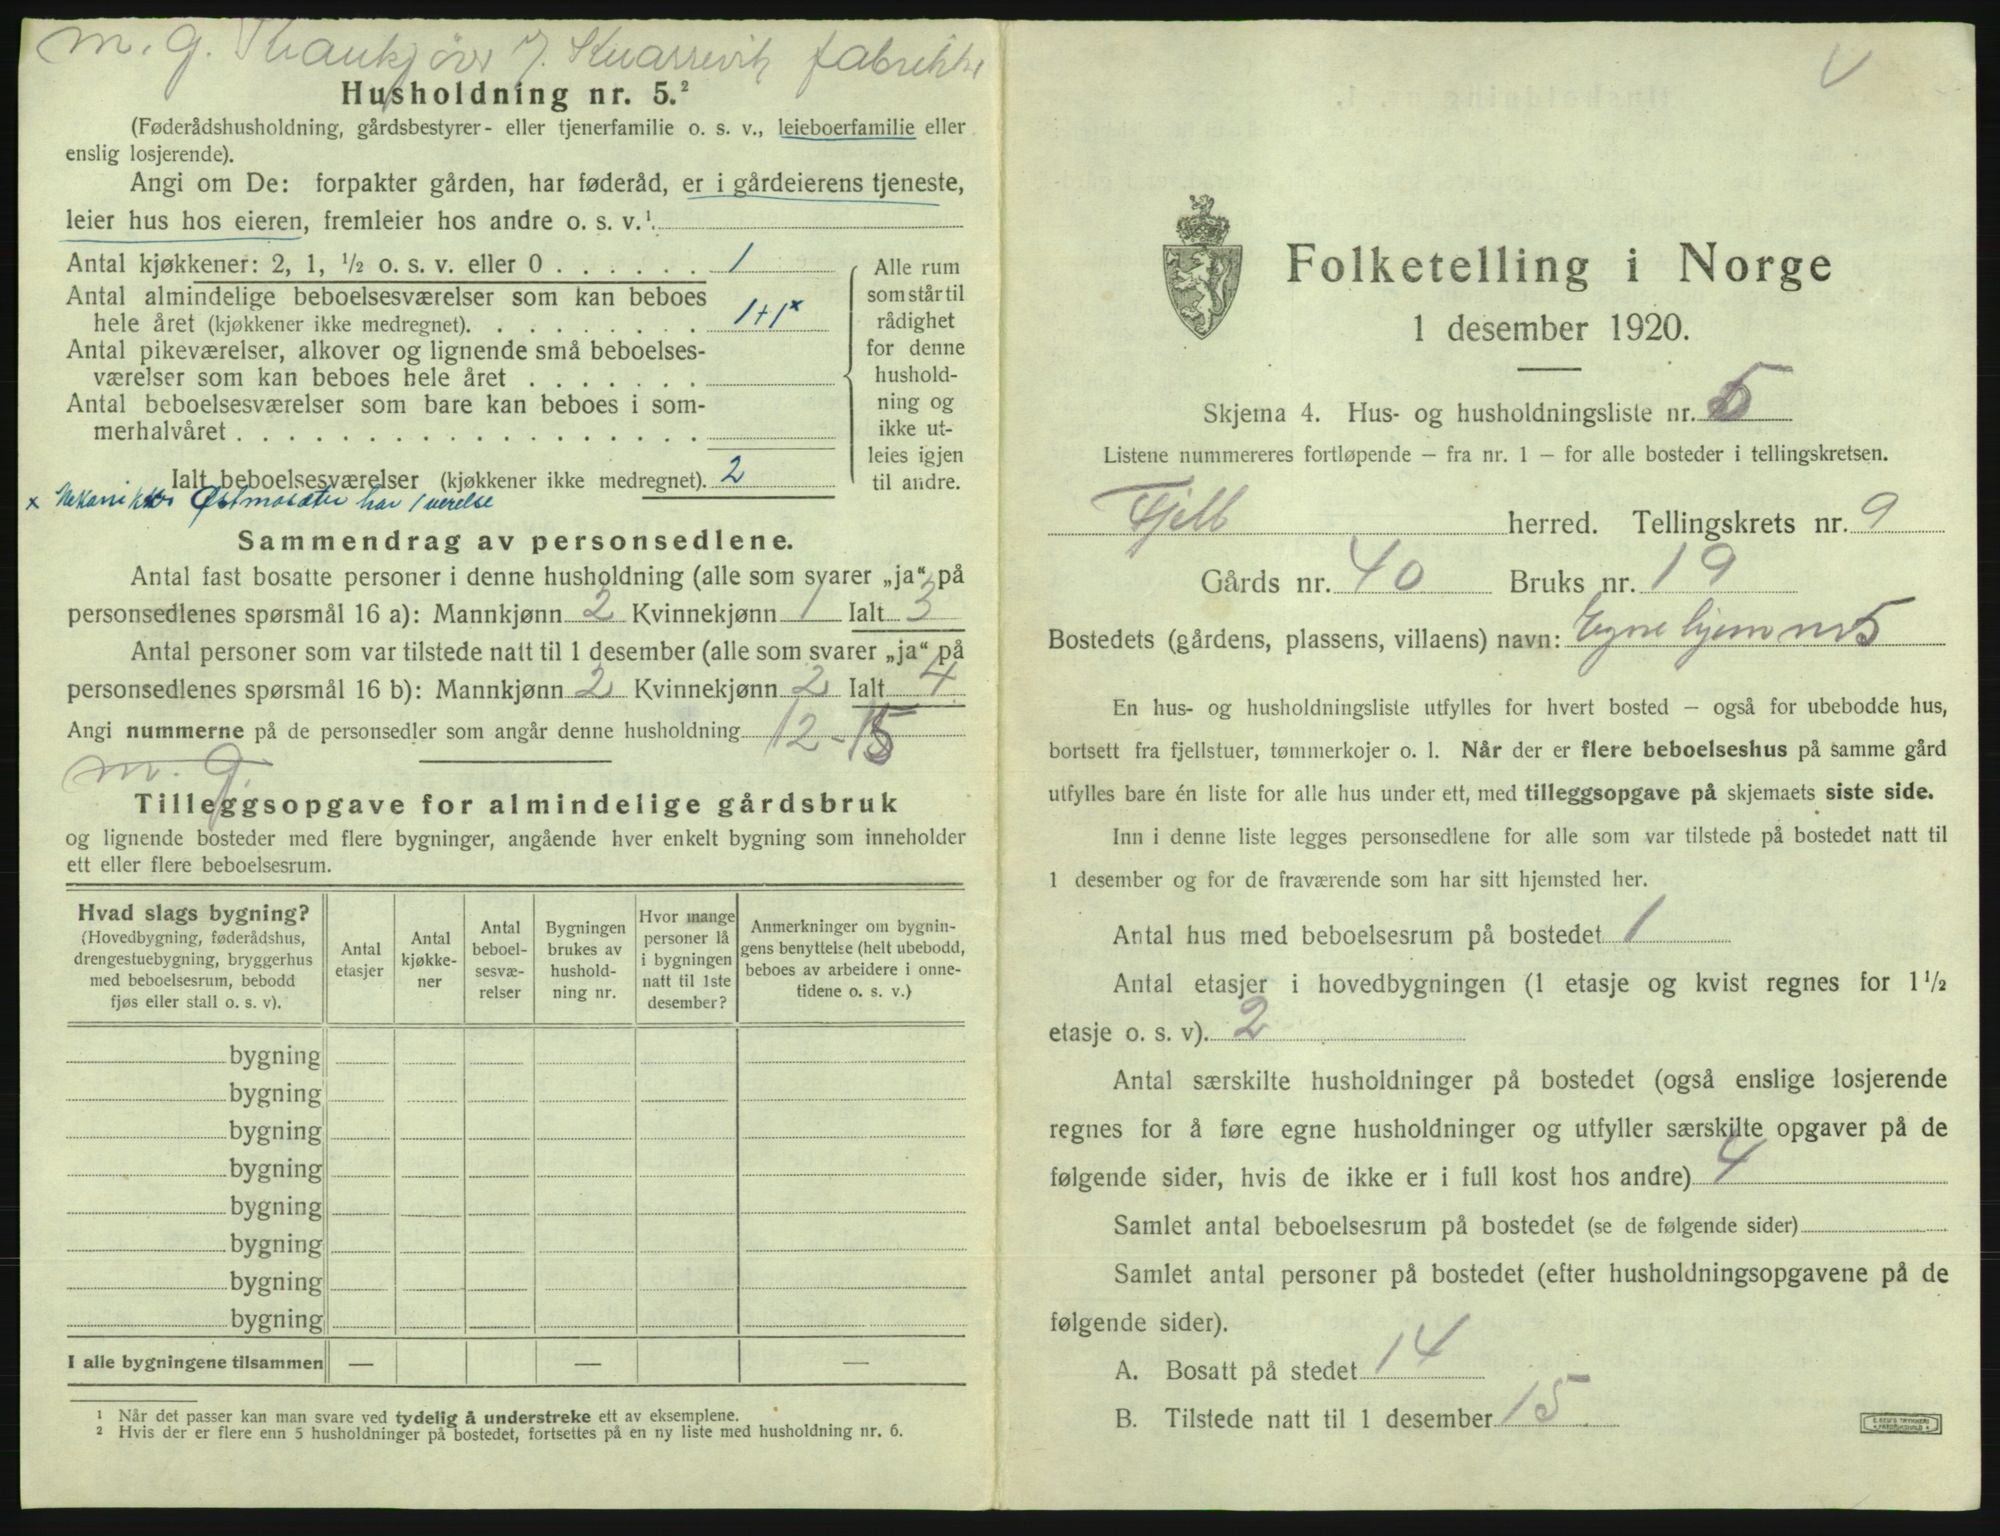 m. g. J. Knarrevik fabrikke
Husholdning nr. 5.²
(Føderådshusholdning, gårdsbestyrer- eller tjenerfamilie o. s. v., leieboerfamilie eller
enslig losjerende).
Angi om De: forpakter gården, har føderåd, er i gårdeierens tjeneste,
leier hus hos eieren, fremleier hos andre o. s. v.¹
Antal kjøkkener: 2, 1, ½ o. s. v. eller 0 . . . . . . 1
Antal almindelige beboelsesværelser som kan beboes
hele året (kjøkkener ikke medregnet). . . . . . . . . 1+1ˣ
Antal pikeværelser, alkover og lignende små beboelses-
værelser som kan beboes hele året . . . . . . .
Antal beboelsesværelser som bare kan beboes i som-
merhalvåret . . . . . . . . . . . . . . . . . .
Ialt beboelsesværelser (kjøkkener ikke medregnet). 2
Alle rum
som står til
rådighet
for denne
hushold-
ning og
ikke ut-
leies igjen
til andre.
x Østmosæter har 1 værelse
Sammendrag av personsedlene.
Antal fast bosatte personer i denne husholdning (alle som svarer „ja“ på
personsedlenes spørsmål 16 a): Mannkjønn 2 Kvinnekjønn 1 Ialt 3
Antal personer som var tilstede natt til 1 desember (alle som svarer „ja“ på
personsedlenes spørsmål 16 b): Mannkjønn 2 Kvinnekjønn 2 Ialt 4
Angi nummerne på de personsedler som angår denne husholdning 12-15
m. g.
Tilleggsopgave for almindelige gårdsbruk
og lignende bosteder med flere bygninger, angående hver enkelt bygning som inneholder
ett eller flere beboelsesrum.
Hvad slags bygning?
(Hovedbygning, føderådshus,
drengestuebygning, bryggerhus
med beboelsesrum, bebodd
fjøs eller stall o. s. v).
Antal
etasjer
Antal
kjøkke-
ner
Antal
beboel-
sesvæ-
relser
Bygningen
brukes av
hushold-
ning nr.
Hvor mange
personer lå
i bygningen
natt til 1ste
desember?
Anmerkninger om bygnin-
gens benyttelse (helt ubebodd,
beboes av arbeidere i onne-
tidene o. s. v.)
bygning
bygning
bygning
bygning
bygning
bygning
bygning
bygning
I alle bygningene tilsammen — — —
¹ Når det passer kan man svare ved tydelig å understreke ett av eksemplene.
² Hvis der er flere enn 5 husholdninger på bostedet, fortsettes på en ny liste med husholdning nr. 6.
Folketelling i Norge
1 desember 1920.
Skjema 4. Hus- og husholdningsliste nr. 5
Listene nummereres fortløpende – fra nr. 1 – for alle bosteder i tellingskretsen.
Fjell herred. Tellingskrets nr. 9
Gårds nr. 40 Bruks nr. 19
Bostedets (gårdens, plassens, villaens) navn: Egne hjem nr 5
En hus- og husholdningsliste utfylles for hvert bosted – også for ubebodde hus,
bortsett fra fjellstuer, tømmerkojer o. l. Når der er flere beboelseshus på samme gård
utfylles bare én liste for alle hus under ett, med tilleggsopgave på skjemaets siste side.
Inn i denne liste legges personsedlene for alle som var tilstede på bostedet natt til
1 desember og for de fraværende som har sitt hjemsted her.
Antal hus med beboelsesrum på bostedet 1
Antal etasjer i hovedbygningen (1 etasje og kvist regnes for 1½
etasje o. s. v). 2
Antal særskilte husholdninger på bostedet (også enslige losjerende
regnes for å føre egne husholdninger og utfyller særskilte opgaver på de
følgende sider, hvis de ikke er i full kost hos andre) 4
Samlet antal beboelsesrum på bostedet (se de følgende sider)
Samlet antal personer på bostedet (efter husholdningsopgavene på de
følgende sider).
A. Bosatt på stedet 14
B. Tilstede natt til 1 desember 15